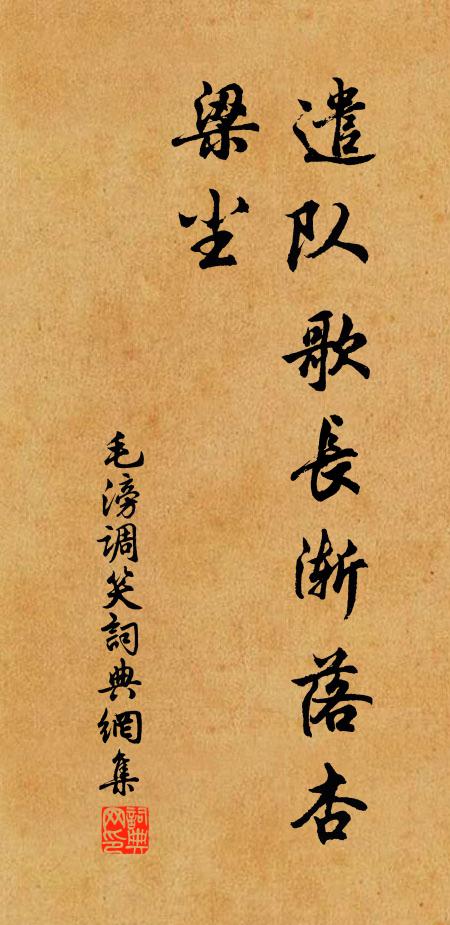 遣队歌長渐落杏
梁尘
毛滂调笑詞典網集
詞典网印